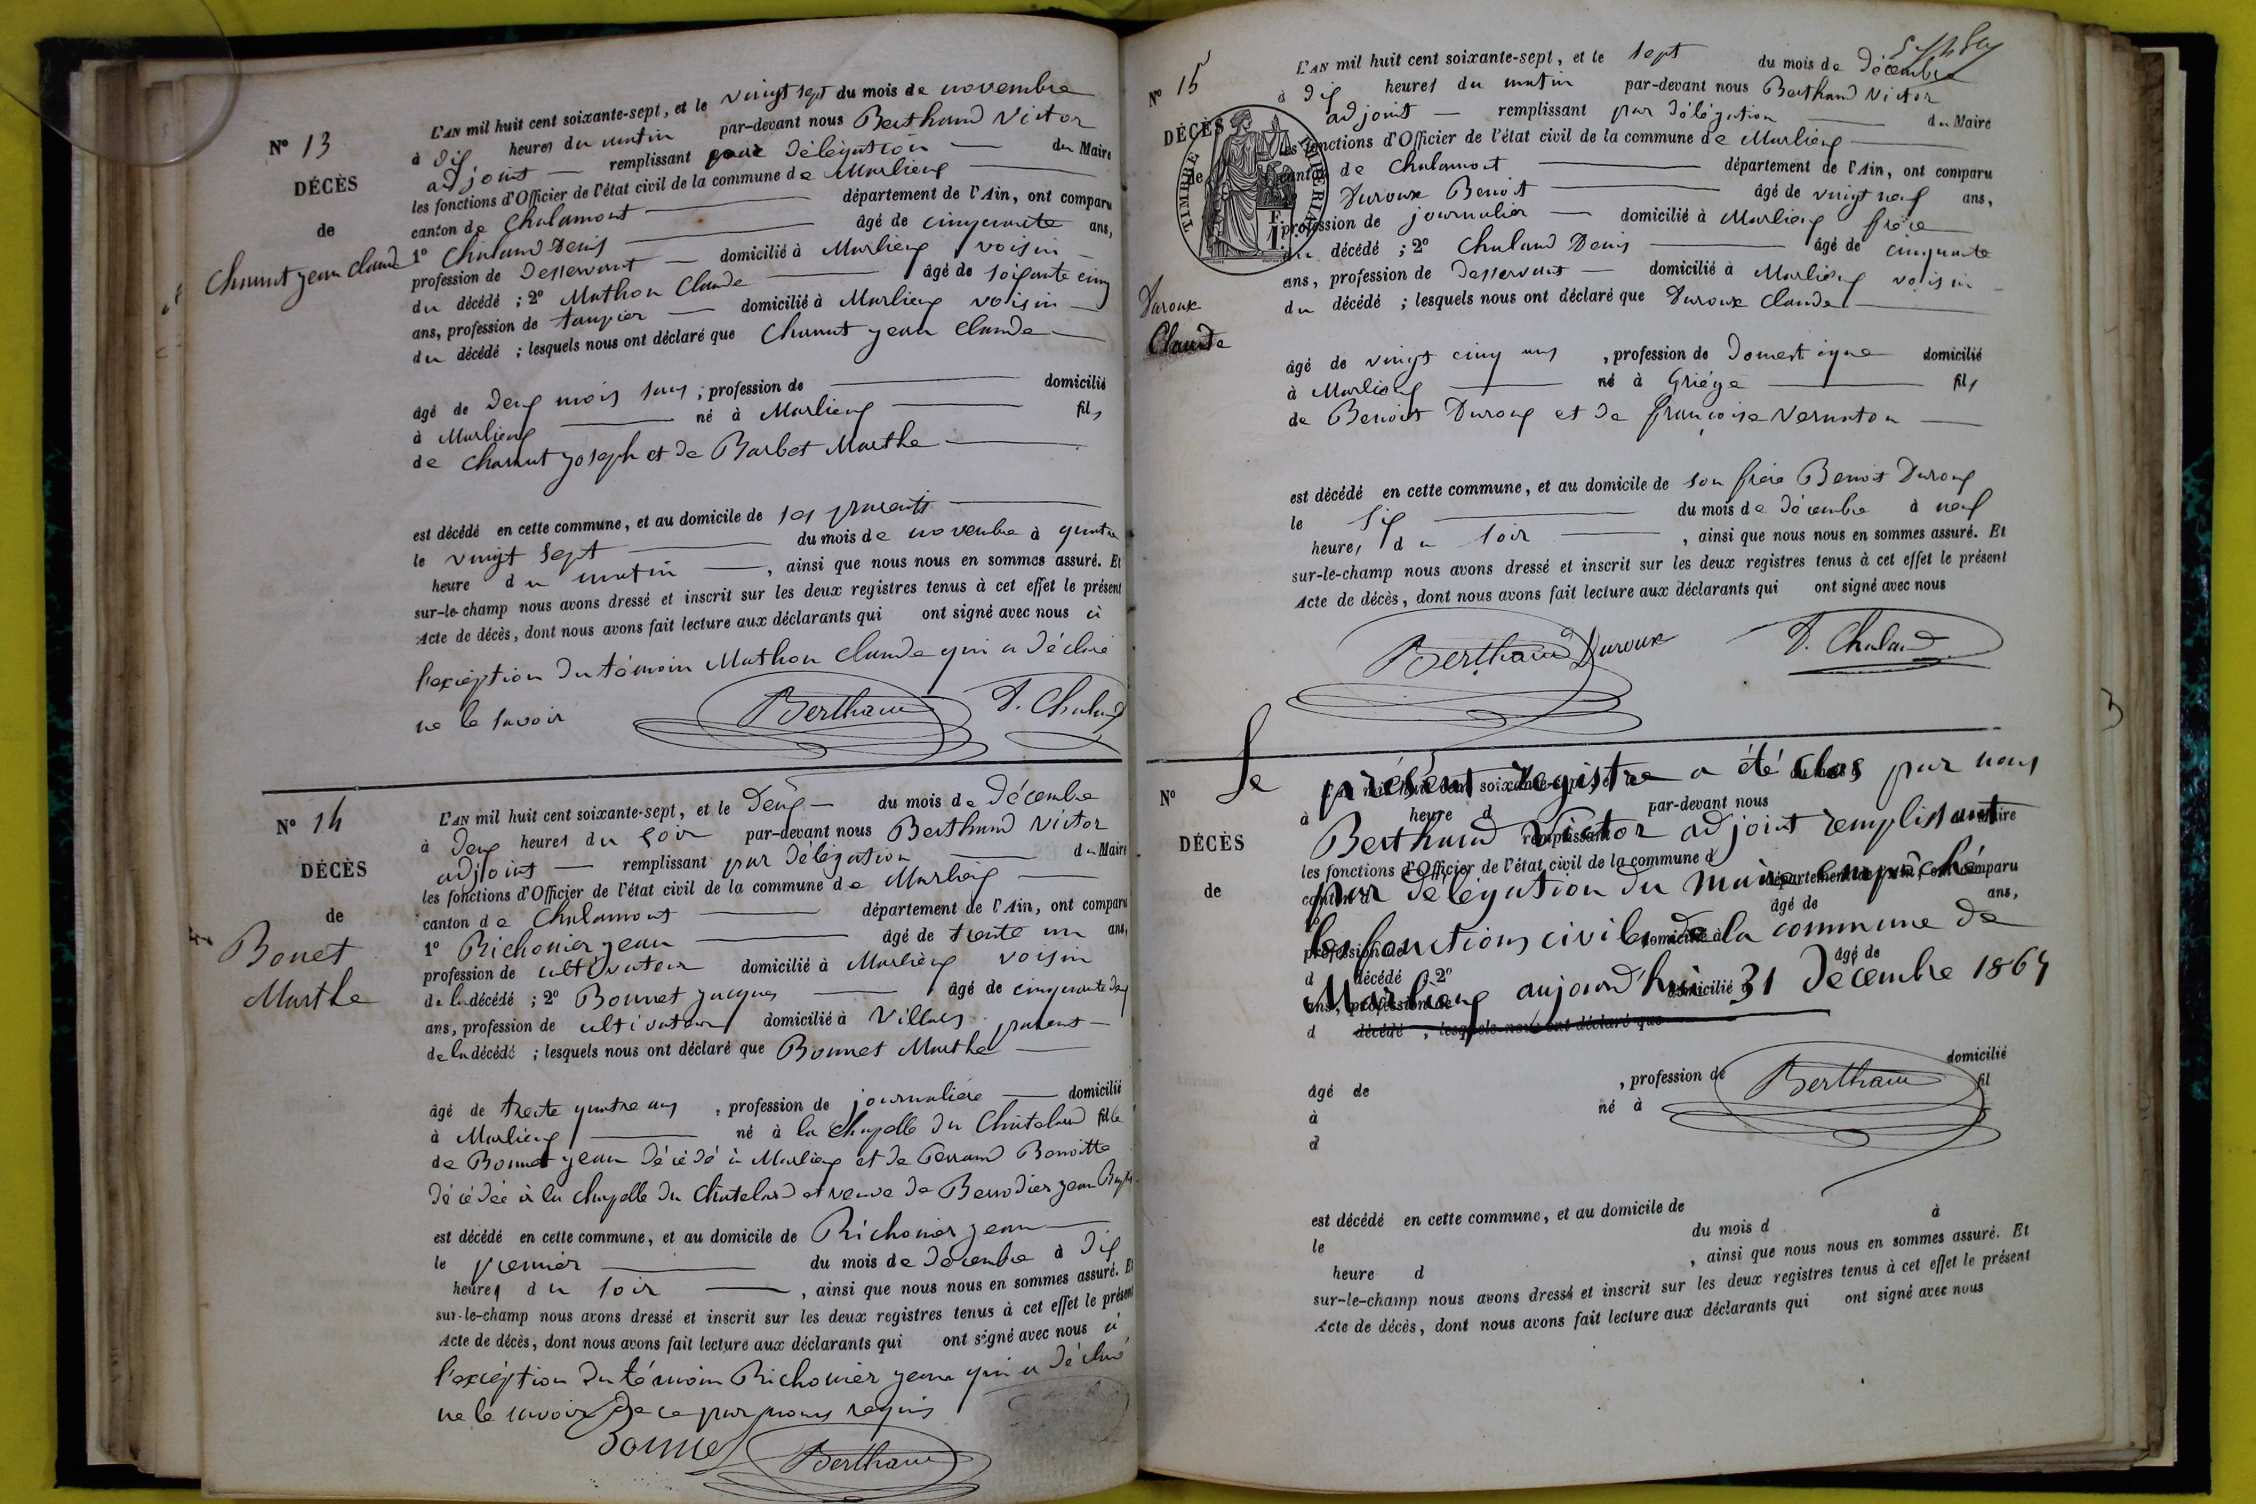 N° 13
DÉCÈS
de
Charnut jean claude
L'AN mil huit cent soixante-sept, et le vingt sept du mois de novembre
à dix heures du matin par-devant nous Berthaud Victor
adjoint — remplissant par délégation — du Maire
les fonctions d'Officier de l'état civil de la commune de Marlieux
canton de Chalamont département de l'Ain, ont comparu
1° Chaland Denis âgé de cinquante ans,
profession de desservant — domicilié à Marlieux voisin
du décédé ; 2° Mathon Claude âgé de soixante cinq
ans, profession de taupier — domicilié à Marlieux voisin —
du décédé ; lesquels nous ont déclaré que Charnut jean claude —
âgé de deux mois , profession de domicilié
à Marlieux né à Marlieux fils
de Charnut joseph et de Barbet Marthe
est décédé en cette commune, et au domicile de ses parents
le vingt sept du mois de novembre à quatre
heure du matin —, ainsi que nous nous en sommes assuré. Et
sur-le-champ nous avons dressé et inscrit sur les deux registres tenus à cet effet le présent
Acte de décès, dont nous avons fait lecture aux déclarants qui ont signé avec nous à
l'exception du témoin Mathon claude qui a déclaré
ne le savoir
Berthaud D. Chaland
N° 14
DÉCÈS
de
Bonet
Marthe
L'AN mil huit cent soixante-sept, et le deux — du mois de décembre
à deux heures du soir par-devant nous Berthaud Victor
adjoint — remplissant par délégation du Maire
les fonctions d'Officier de l'état civil de la commune de Marlieux
canton de Chalamont département de l'Ain, ont comparu
1° Richonier jean âgé de trente un ans,
profession de cultivateur domicilié à Marlieux voisin
de la décédé ; 2° Bonnet jacques âgé de cinquante deux
ans, profession de cultivateur domicilié à Villars parent —
de la décédé ; lesquels nous ont déclaré que Bonnet Marthe
âgé de trente quatre ans , profession de journalière — domicilié
à Marlieux né à la chapelle du Châtelard fille
de Bonnet jean décédé à Marlieux et de Ferrand Benoitte
décédée à la chapelle du Châtelard et veuve de Berrodier jean
est décédé en cette commune, et au domicile de Richonier jean
le premier du mois de décembre à dix
heures du soir , ainsi que nous nous en sommes assuré. Et
sur-le-champ nous avons dressé et inscrit sur les deux registres tenus à cet effet le présent
Acte de décès, dont nous avons fait lecture aux déclarants qui ont signé avec nous à
l'exception du témoin Richonier jean qui a déclaré
ne le savoir de ce par nous requis
Bonnet Berthaud
N° 15
DÉCÈS
de
Duroux
Claude
TIMBRE IMPÉRIAL
L'AN mil huit cent soixante-sept, et le sept du mois de décembre
à dix heures du matin par-devant nous Berthaud Victor
adjoint — remplissant par délégation du Maire
les fonctions d'Officier de l'état civil de la commune de Marlieux
canton de Chalamont département de l'Ain, ont comparu
Duroux Benoit âgé de vingt neuf ans,
profession de journalier — domicilié à Marlieux frère
du décédé ; 2° Chaland Denis âgé de cinquante
ans, profession de desservant — domicilié à Marlieux voisin
du décédé ; lesquels nous ont déclaré que Duroux Claude
âgé de vingt cinq ans , profession de domestique domicilié
à Marlieux né à Griége fils
de Benoit Duroux et de françoise Vernaton
est décédé en cette commune, et au domicile de son frère Benoit Duroux
le six du mois de décembre à neuf
heures du soir , ainsi que nous nous en sommes assuré. Et
sur-le-champ nous avons dressé et inscrit sur les deux registres tenus à cet effet le présent
Acte de décès, dont nous avons fait lecture aux déclarants qui ont signé avec nous
Berthaud Duroux D. Chaland
N°
DÉCÈS
de
Le présent registre a été clos par nous
Berthaud Victor adjoint remplissant
par délégation du maire empêché
les fonctions civiles de la commune de
Marlieux aujourd'hui 31 Décembre 1867
à heure d par-devant nous
les fonctions d'Officier de l'état civil de la commune d
d décédé ; 2° âgé de
d décédé , lesquels nous ont déclaré que
âgé de , profession de domicilié
à né à fil
d
Berthaud
est décédé en cette commune, et au domicile de
le du mois d à
heure d , ainsi que nous nous en sommes assuré. Et
sur-le-champ nous avons dressé et inscrit sur les deux registres tenus à cet effet le présent
Acte de décès, dont nous avons fait lecture aux déclarants qui ont signé avec nous